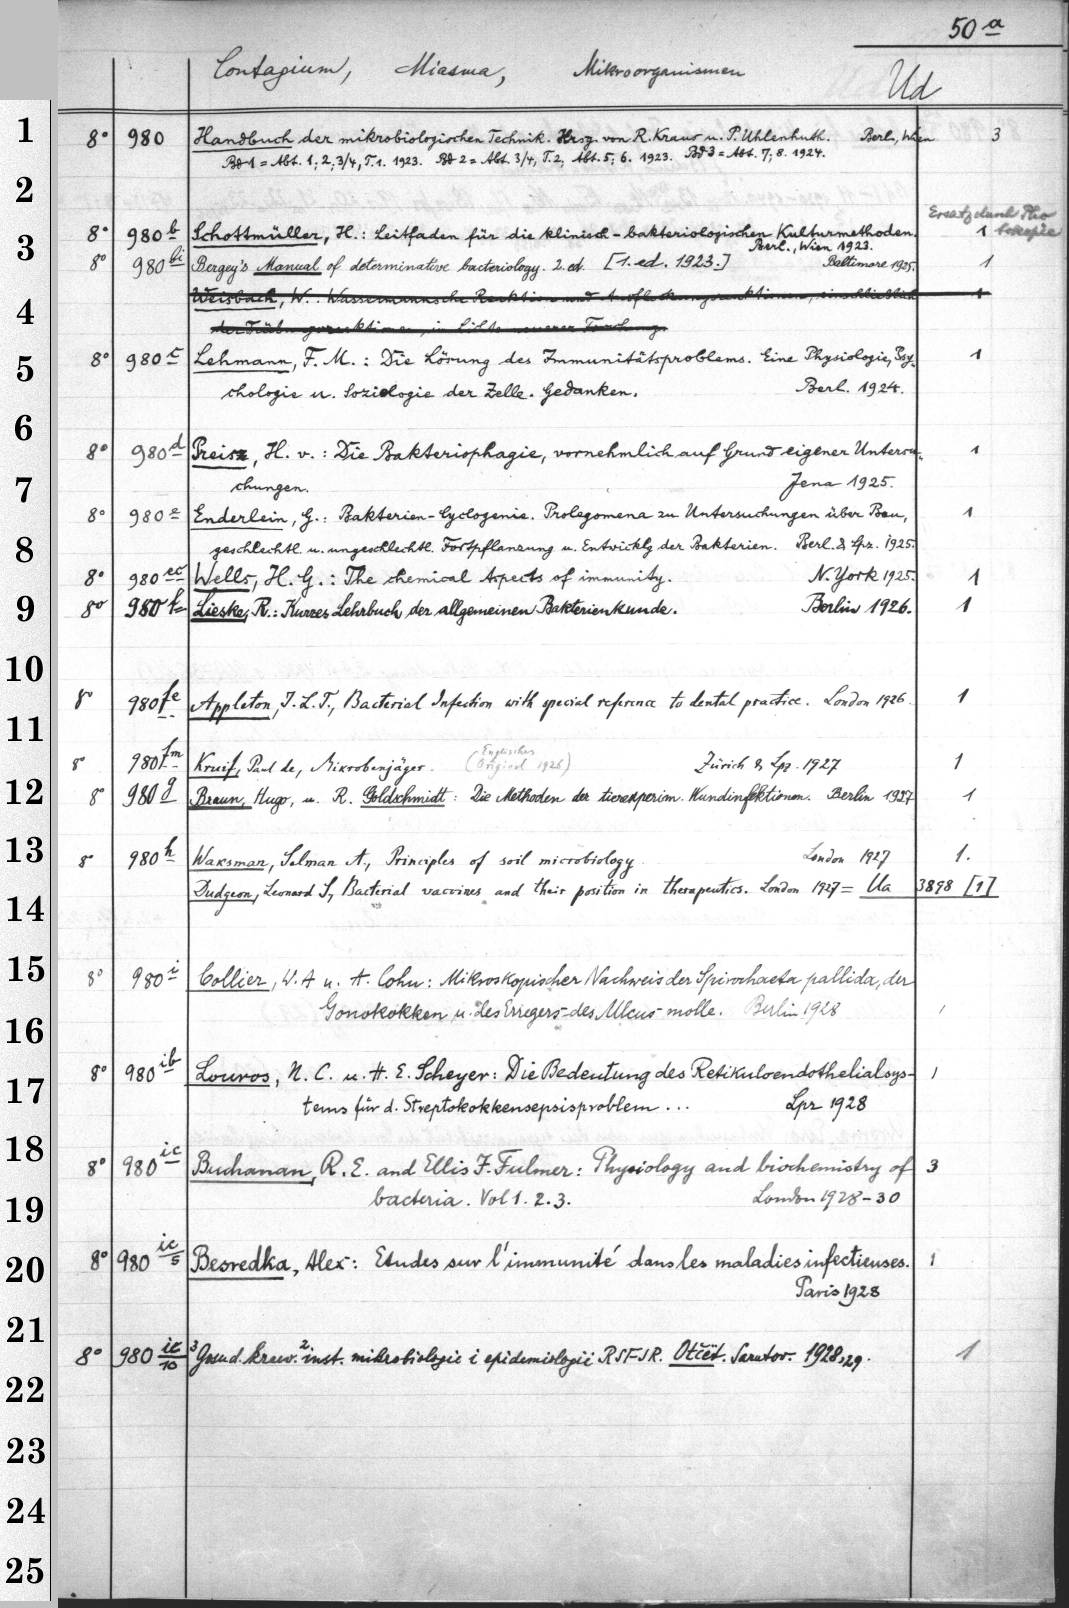 50 a
Contagium, Miasma, Mikroorganismen
Ud
1
8° 980 Handbuch der mikrobiologischen Technik. Hrsg. von R. Kraus u. P. Uhlenhuth. Berl., Wien 3
Bd 1 = Abt. 1; 2; 3/4, T. 1. 1923. Bd 2 = Abt. 3/4, T. 2, Abt. 5; 6. 1923. Bd 3 = Abt. 7; 8. 1924.
2
Ersatz durch Pho
8° 980 b Schottmüller, H.: Leitfaden für die klinisch-bakteriologischen Kulturmethoden. 1 tokopie
3
Berl., Wien 1923.
8° 980 bi Bergey's Manual of determinative bacteriology. 2. ed. [1. ed. 1923.] Baltimore 1925. 1
Weisbach, W.: Wassermannsche Reaktion und Ausflockungsreaktionen, einschließlich 1
4
der Trübungsreaktionen, im Lichte neuerer Forschung.
8° 980 c Lehmann, F. M.: Die Lösung des Immunitätsproblems. Eine Physiologie, Psy- 1
5
chologie u. Soziologie der Zelle. Gedanken. Berl. 1924.
6
8° 980 d Preisz, H. v.: Die Bakteriophagie, vornehmlich auf Grund eigener Untersu- 1
7
chungen. Jena 1925.
8° 980 e Enderlein, G.: Bakterien-Cyclogenie. Prolegomena zu Untersuchungen über Bau, 1
8
geschlechtl. u. ungeschlechtl. Fortpflanzung u. Entwicklg der Bakterien. Berl. & Lpz. 1925.
8° 980 ec Wells, H. G.: The chemical Aspects of immunity. N. York 1925. 1
9
8° 980 f Lieske, R.: Kurzes Lehrbuch der allgemeinen Bakterienkunde. Berlin 1926. 1
10
8° 980 fe Appleton, J. L. T., Bacterial Infection with special reference to dental practice. London 1926. 1
11
Englisches
8° 980 fm Kruif, Paul de, Mikrobenjäger. (Original 1926) Zürich & Lpz. 1927 1
12
8° 980 g Braun, Hugo, u. R. Goldschmidt: Die Methoden der tierexperim. Wundinfektionen. Berlin 1927 1
13
8° 980 h Waksman, Selman A., Principles of soil microbiology London 1927 1.
Dudgeon, Leonard S., Bacterial vaccines and their position in therapeutics. London 1927 = Ua 3898 [1]
14
15
8° 980 i Collier, W. A u. A. Cohn: Mikroskopischer Nachweis der Spirochaeta pallida, der
16
Gonokokken u. des Erregers des Ulcus molle. Berlin 1928 1
17
8° 980 ib Louros, N. C. u. H. E. Scheyer: Die Bedeutung des Retikuloendothelialsys- 1
tems für d. Streptokokkensepsisproblem ... Lpz 1928
18
8° 980 ic Buchanan, R. E. and Ellis F. Fulmer: Physiology and biochemistry of 3
19
bacteria. Vol 1. 2. 3. London 1928-30
20
8° 980 ic/5 Besredka, Alex: Etudes sur l'immunité dans les maladies infectieuses. 1
Paris 1928
21
8° 980 ic/10 ³Gosud. kraev. ²inst. mikrobiologii i epidemiologii RSFSR. Otčët. Saratov. 1928,29. 1
22
23
24
25